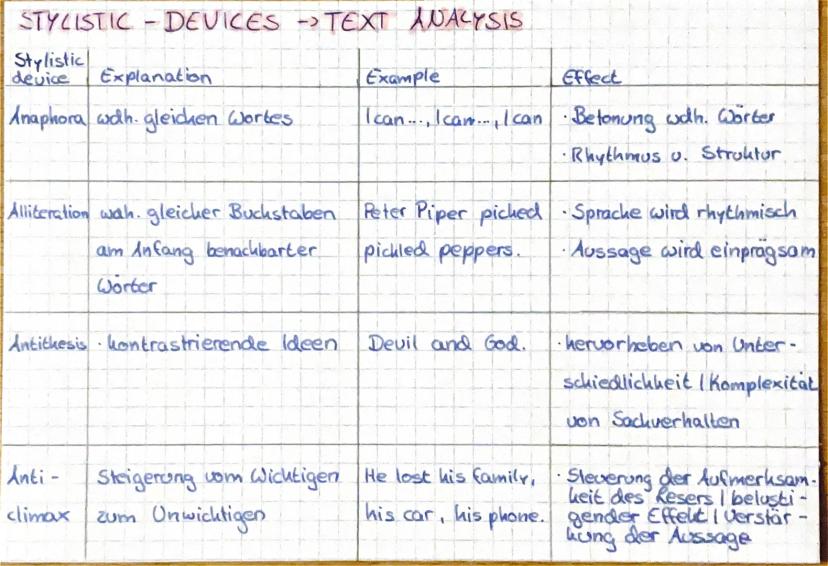 STYLISTIC - DEVICES -> TEXT ANALYSIS
Stylistic device | Explanation | Example | Effect
Anaphora | wdh. gleichen Wortes | I can..., I can..., I can | · Betonung wdh. Wörter
· Rhythmus u. Struktur
Alliteration | wdh. gleicher Buchstaben | Peter Piper picked | · Sprache wird rhythmisch
am Anfang benachbarter | pickled peppers. | · Aussage wird einprägsam
Wörter
Antithesis | · kontrastrierende Ideen | Devil and God. | · hervorheben von Unter-
schiedlichkeit / Komplexität
von Sachverhalten
Anti- | Steigerung vom Wichtigen | He lost his family, | · Steuerung der Aufmerksam-
keit des Lesers / belusti-
climax | zum Unwichtigen | his car, his phone. | gender Effekt / Verstär-
kung der Aussage